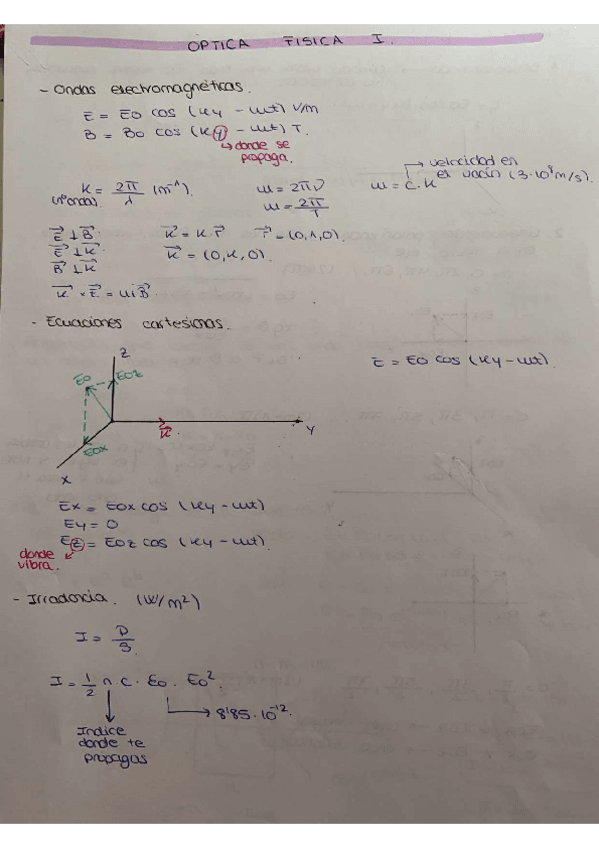 OPTICA FISICA I.
- Ondas electromagnéticas.
E = E0 cos (Ky - wt) V/m
B = B0 cos (Ky - wt) T.
↳ donde se propaga.
K = 2π/λ (m⁻¹)
(nº ondas)
w = 2πν
w = 2π/T
w = c.K
→ velocidad en el vacío (3·10⁸ m/s).
E ⊥ B
E ⊥ K
B ⊥ K
K = K.r
r = (0,1,0).
K = (0,K,0).
K × E = wB
- Ecuaciones cartesianas.
E = E0 cos (Ky - wt)
Z
E0
E0z
E0x
K
Y
X
Ex = E0x cos (Ky - wt)
Ey = 0
Ez = E0z cos (Ky - wt)
donde vibra.
- Irradancia. (W/m²)
I = P/S.
I = 1/2 n c · E0 · E0².
→ 8'85·10⁻¹².
Indice
donde te
propagas